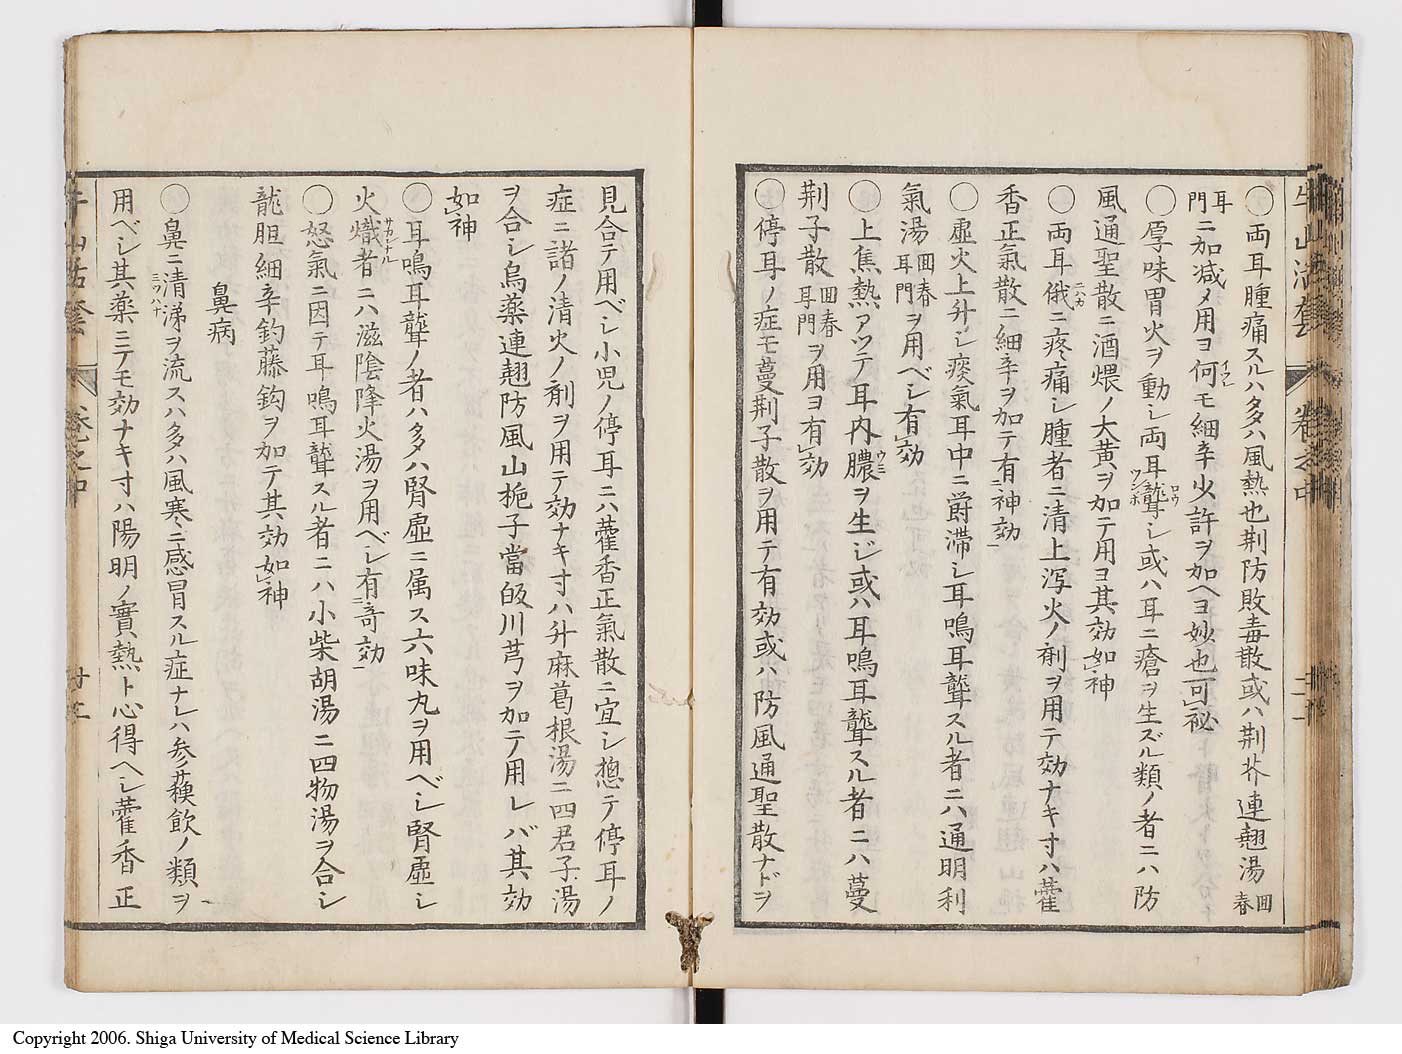 牛山活套 卷之中 二十一
○両耳腫痛スルハ多ハ風熱也荆防敗毒散或ハ荆芥連翹湯回春
耳門ニ加减メ用ヨ何イヅレモ細辛少許ヲ加ヘヨ妙也可秘
○厚味胃火ヲ動シ両耳聾シ或ハ耳ニ瘡ヲ生ズル類ノ者ニハ防
風通聖散ニ酒煨ノ大黄ヲ加テ用ヨ其効如レ神
○両耳俄ニハカニ疼痛シ腫者ニ清上泻火ノ剤ヲ用テ効ナキ寸ハ藿
香正氣散ニ細辛ヲ加テ有二神効一
○虚火上升シ痰氣耳中ニ欝滞シ耳鳴耳聾スル者ニハ通明利
氣湯回春耳門ヲ用ベシ有レ効
○上焦熱アツテ耳内膿ウミヲ生ジ或ハ耳鳴耳聾スル者ニハ蔓
荆子散回春耳門ヲ用ヨ有レ効
○停耳ノ症モ蔓荆子散ヲ用テ有効或ハ防風通聖散ナドヲ
見合テ用ベシ小児ノ停耳ニハ藿香正氣散ニ宜シ惣テ停耳ノ
症ニ諸ノ清火ノ剤ヲ用テ効ナキ寸ハ升麻葛根湯ニ四君子湯
ヲ合シ烏薬連翹防風山梔子當皈川芎ヲ加テ用レバ其効
如レ神
○耳鳴耳聾ノ者ハ多ハ腎虚ニ属ス六味丸ヲ用ベシ腎虚シ
火熾サカンナル者ニハ滋陰降火湯ヲ用ベシ有二奇効一
○怒氣ニ因テ耳鳴耳聾スル者ニハ小柴胡湯ニ四物湯ヲ合シ
龍胆細辛釣藤鈎ヲ加テ其効如レ神
鼻病
○鼻ニ清涕ミヅハナヲ流スハ多ハ風寒ニ感冒スル症ナレハ参蘓飲ノ類ヲ
用ベシ其薬ミテモ効ナキ寸ハ陽明ノ實熱ト心得ヘシ藿香正
牛山活套 卷之中 廿一
Copyright 2006. Shiga University of Medical Science Library